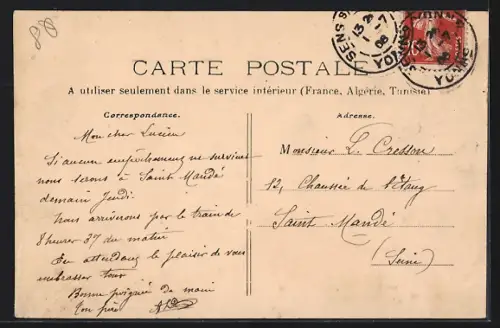 SENS S YONNE
13 1-7 08
SENS S YONNE
YONNE
CARTE POSTALE
A utiliser seulement dans le service intérieur (France, Algérie, Tunisie)
Correspondance.
Mon cher Lucien
Si aucun empêchement ne survient
nous serons à Saint Mandé
demain Jeudi.
Nous arriverons par le train de
8 heures 37 du matin
En attendant le plaisir de vous
embrasser tous
Bonne poignée de main
Ton père
Adresse.
Monsieur L. Cresson
12, Chaussée de l'Étang
Saint Mandé
(Seine)